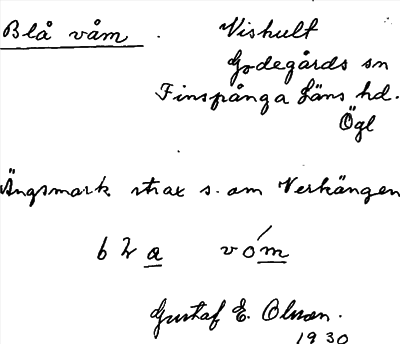 Blå våm. Vishult
Godegårds sn
Finspånga Läns hd.
Ögl
Ängsmark strax s. om Verkängen
vóm
Gustaf E. Olsson.
1930